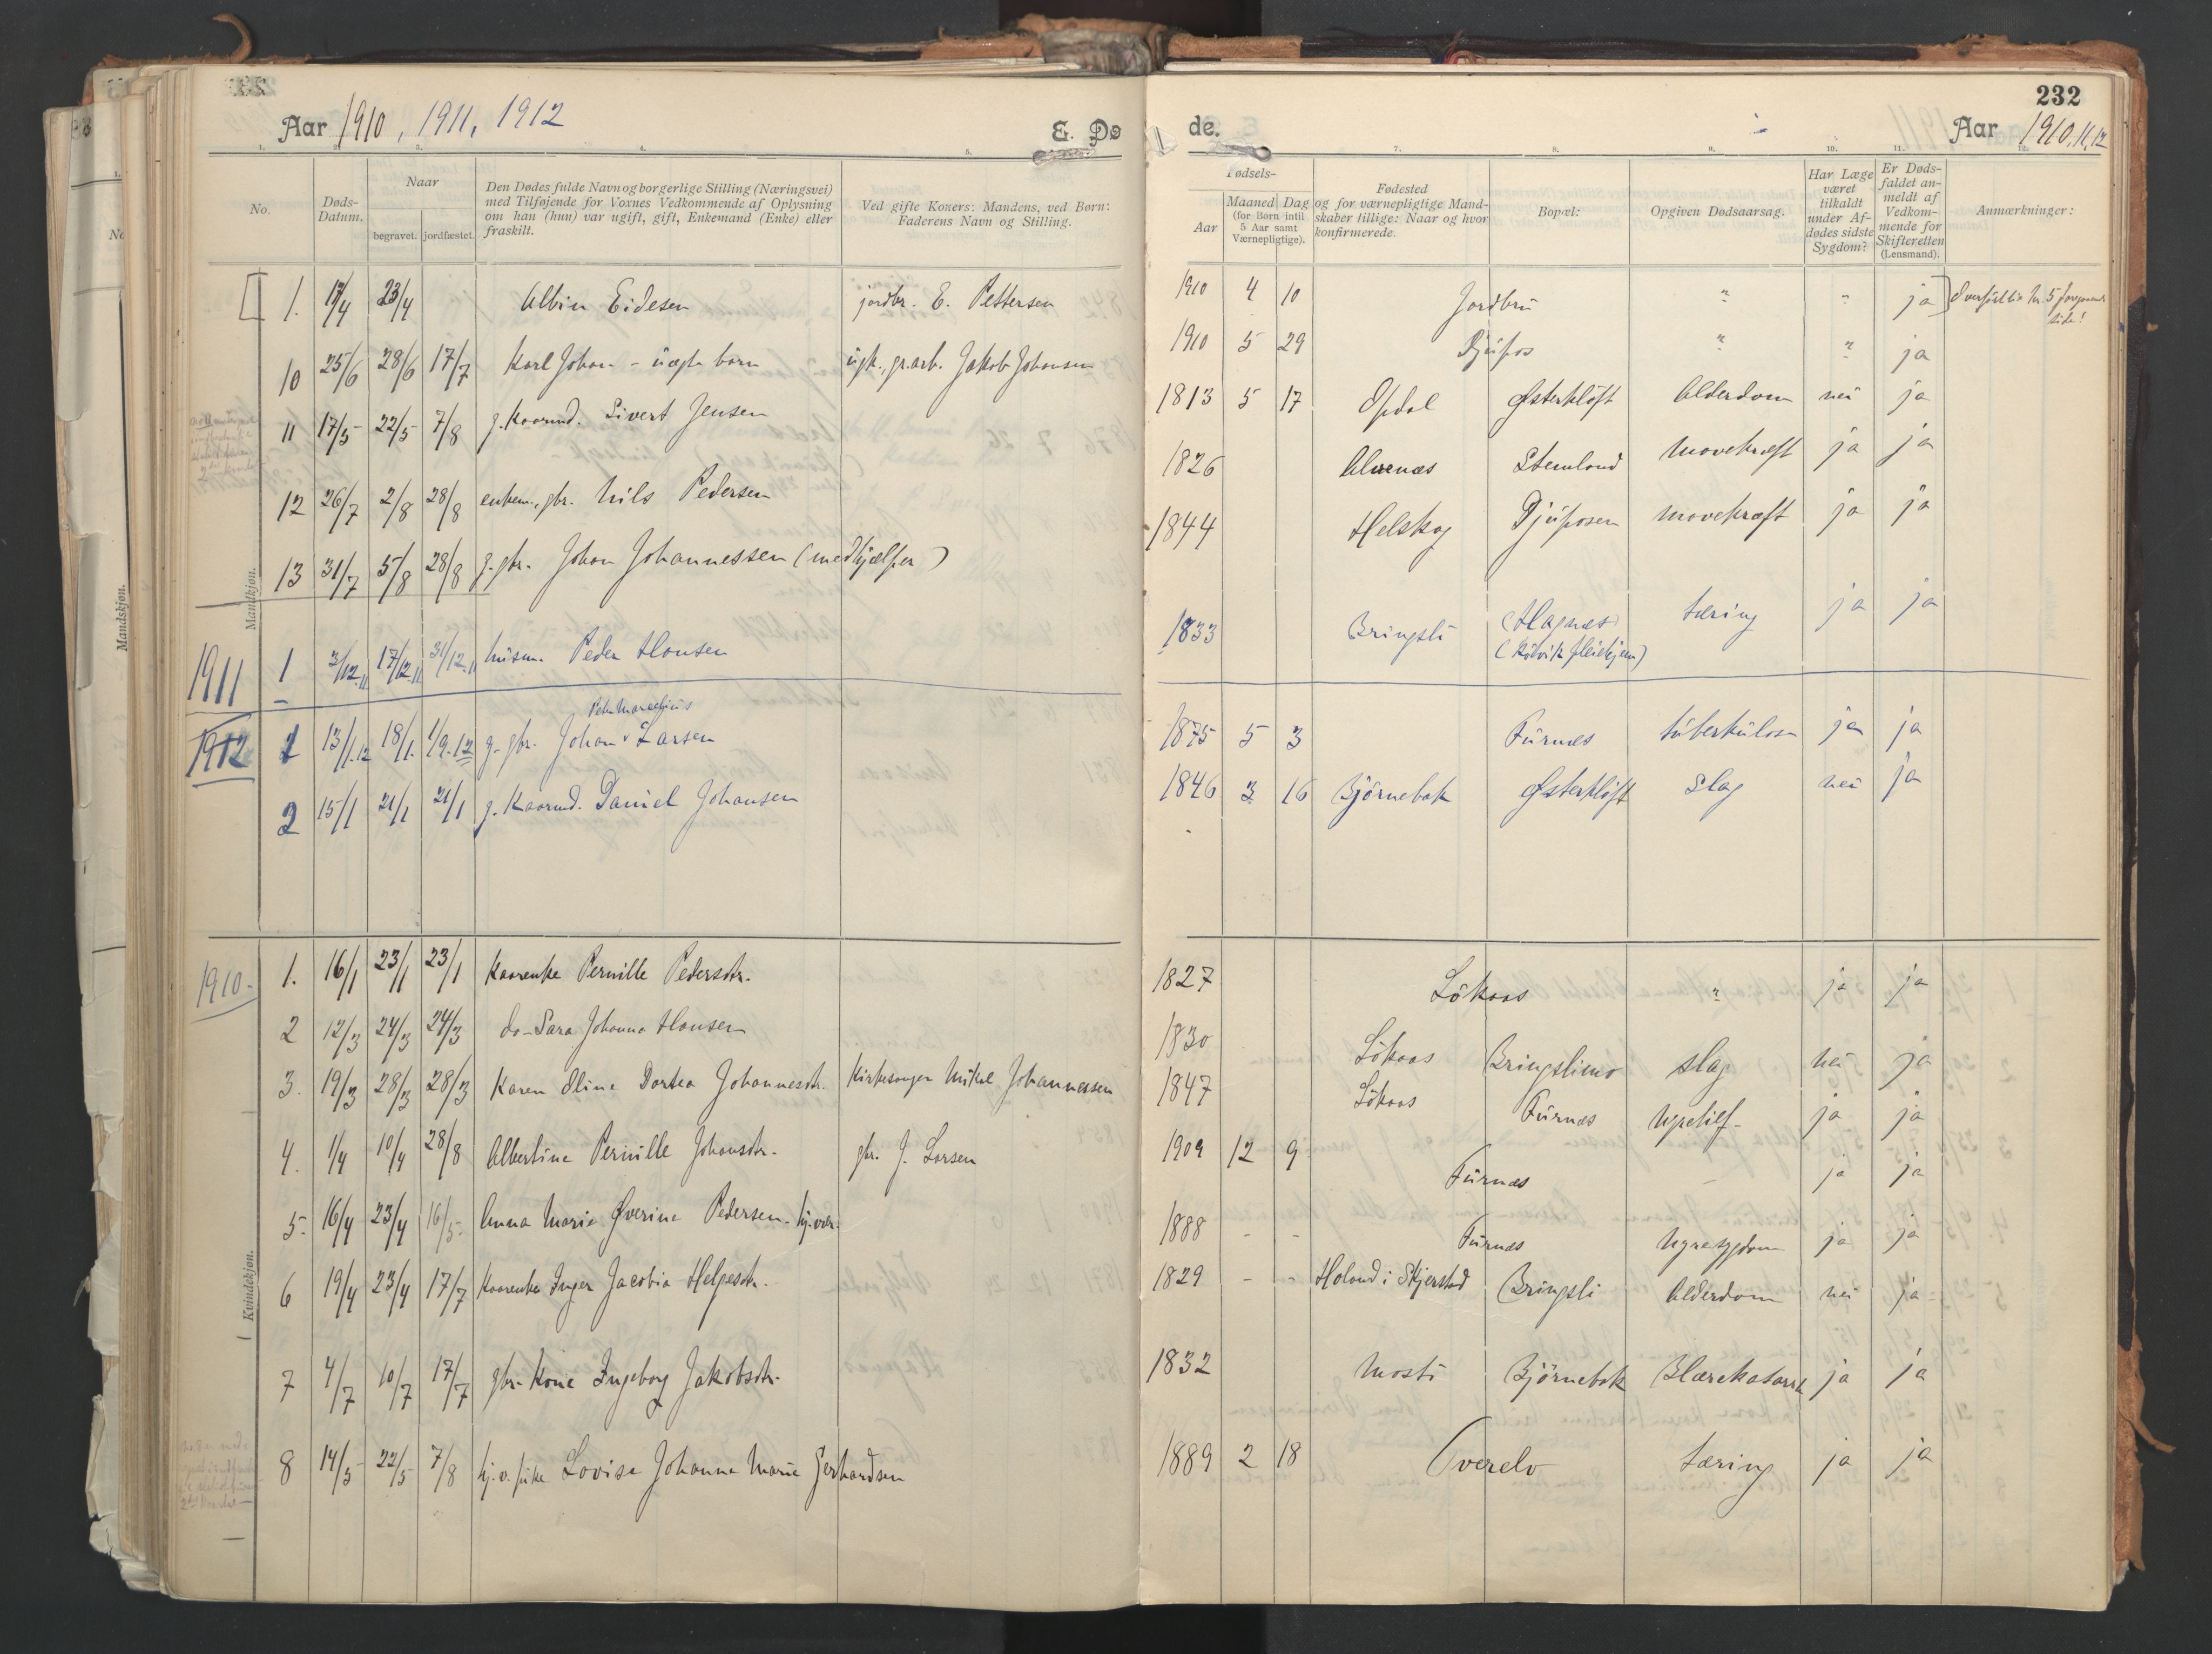 232
Aar 1910, 1911, 1912 E. Dø
de. Aar 1910, 11, 12
1. 2. 3. 4. 5.
7. 8. 9. 10. 11. 12.
No.
Døds-Datum.
Naar
begravet. jordfæstet.
Den Dødes fulde Navn og borgerlige Stilling (Næringsvei) med Tilføjende for Voxnes Vedkommende af Oplysning om han (hun) var ugift, gift, Enkemand (Enke) eller fraskilt.
Ved gifte Koners: Mandens, ved Børn: Faderens Navn og Stilling.
Fødsels-
Aar
Maaned Dag
(for Børn intil 5 Aar samt Værnepligtige).
Fødested og for værnepligtige Mandskaber tillige: Naar og hvor konfirmerede.
Bopæl:
Opgiven Dødsaarsag.
Har Læge været tilkaldt under Afdødes sidste Sygdom?
Er Dødsfaldet anmeldt af Vedkommende for Skifteretten (Lensmand).
Anmærkninger:
Mandkjøn.
1. 17/4 23/4 Albin Eidesen jordbr. E. Pettersen 1910 4 10 Jordbru " " ja Overført til Nr. 5 foregaaende side!
10 25/6 28/6 17/7 Karl Johan - uægte barn ugk., gr.arb. Jakob Johansen 1910 5 29 Djupos " " ja
11 17/5 22/5 7/8 g. Kaarmd. Sivert Jensen 1813 5 17 Opdal Østerkløft Alderdom nei ja
12 26/7 2/8 28/8 enkem., gbr. Nils Pedersen 1826 Alvenæs Stemland Mavekræft ja ja
13 31/7 5/8 28/8 g. gbr. Johan Johannessen (medhjælper) 1844 Helskog Djuposen Mavekræft ja ja
1911 1 3/12 11 17/12 11 31/12 11 husm. Peder Hansen 1833 Bringsli (Hagnes) tæring ja ja
(Kølvik pleiehjem)
Peter Marselius
1912 1 13/1 12 18/1 1/9 12 g. gbr. Johan Larsen 1875 5 3 Furnes tuberkulose ja ja
2 15/1 21/1 21/1 g. Kaarmd. Daniel Johansen 1846 3 16 Bjørnebak Østerkløft Slag nei ja
Kvindekjøn.
1910. 1. 16/1 23/1 23/1 Kaarenke Pernille Pedersdtr. 1827 Løkaas " ja ja
2 12/3 24/3 24/3 do - Sara Johanna Hansen 1830 Løkaas Bringslimo slag nei ja
3. 19/3 28/3 28/3 Karen Eline Dortea Johannesdtr. Kirkesanger Mikal Johannessen 1847 Løkaas Furnes Nyretilf. ja ja
4. 1/4 10/4 28/8 Albertine Pernille Johansdtr. gbr. J. Larsen 1909 12 9 Furnes - ja ja
5. 16/4 23/4 16/5 Anna Marie Øverine Pedersen - hj.vær. 1888 - - Furnes Nyresygdom ja ja
6 19/4 23/4 17/7 Kaarenke Inger Jacobia Helgesdtr. 1829 - - Holand i Skjerstad Bringsli Alderdom nei ja
7 4/7 10/7 17/7 gbr. Kone Ingeborg Jakobsdtr. 1832 Mosti Bjørnebak Blærekatarrh ja ja
8 14/5 22/5 7/8 hj. v. pike Lovise Johanna Marie Gerhardsen 1889 2 18 Tverelv tæring ja ja
Mandskjøn.